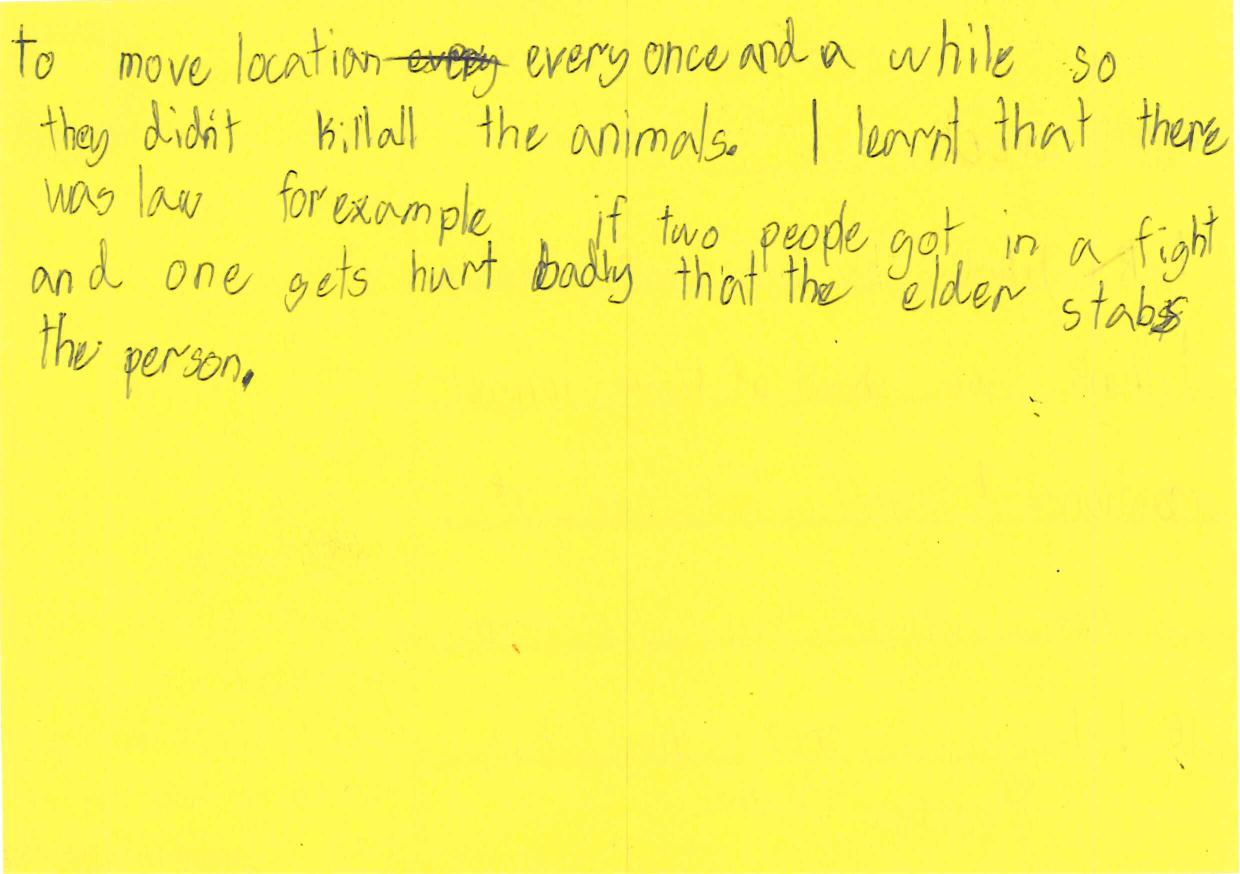 to move location every every once and a while so
they didn't kill all the animals. I learnt that there
was law for example if two people got in a fight
and one gets hurt badly that the elder stabs
the person.